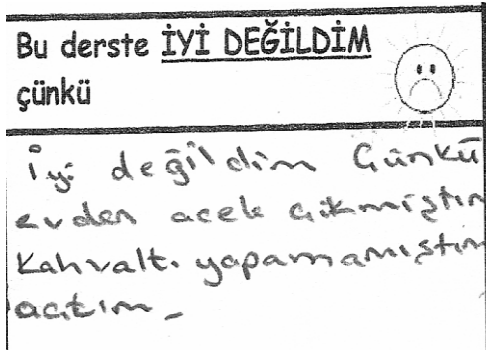 Bu derste İYİ DEĞİLDİM
çünkü
İyi değildim Çünkü
evden acele çıkmıştım
Kahvaltı yapamamıştım
açtım